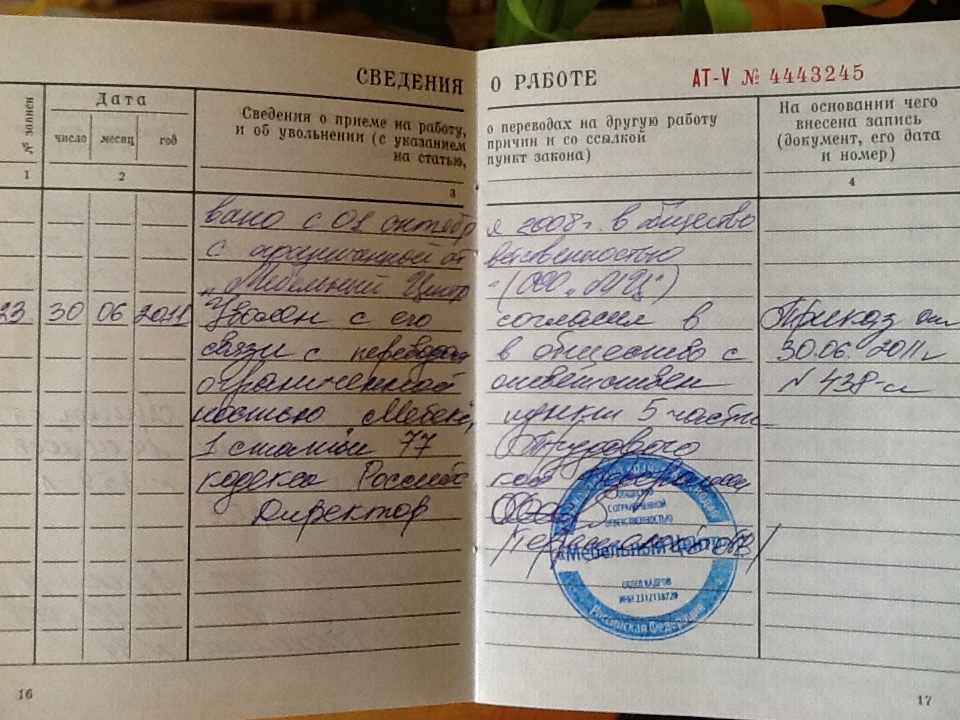 СВЕДЕНИЯ О РАБОТЕ AT-V № 4443245
№ записи
Дата
число месяц год
Сведения о приеме на работу, о переводах на другую работу
и об увольнении (с указанием причин и со ссылкой
на статью, пункт закона)
На основании чего
внесена запись
(документ, его дата
и номер)
1 2 3 4
вано с 01 октября 2008г. в общество
с ограниченной ответственностью
„Мебельный Центр" (ООО „МЦ")
23 30 06 2011 Уволен с его согласия в Приказ от
связи с переводом в общество с 30.06.2011г
ограниченной ответствен N 438-л
ностью „ пункт 5 части
1 статьи 77 Трудового
кодекса Российской Федерации
Директор ООО
ОБЩЕСТВО
С ОГРАНИЧЕННОЙ
ОТВЕТСТВЕННОСТЬЮ
«Мебельный Центр»
ОТДЕЛ КАДРОВ
ИНН 2312138720
Российская Федерация
16 17